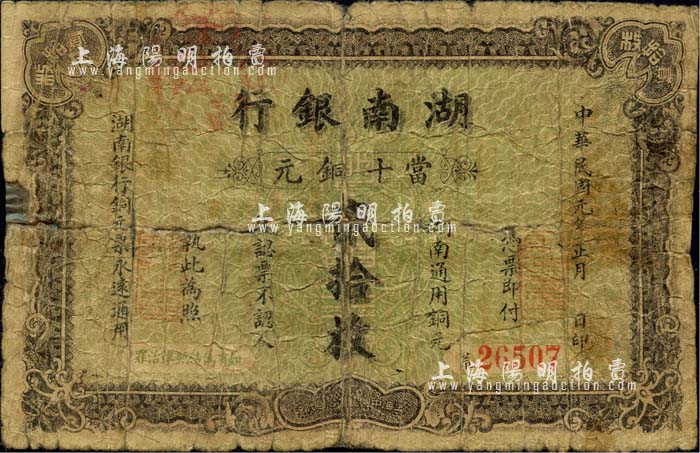 上海陽明拍賣
www.yangmingauction.com
湖南銀行
當十銅元
中華民國元年正月　日印
憑票即付
湖南通用銅元
貳拾枚
認票不認人
執此為照
湖南銀行銅元票永遠通用
26507
上海陽明拍賣
www.yangmingauction.com
上海陽明拍賣
www.yangmingauction.com